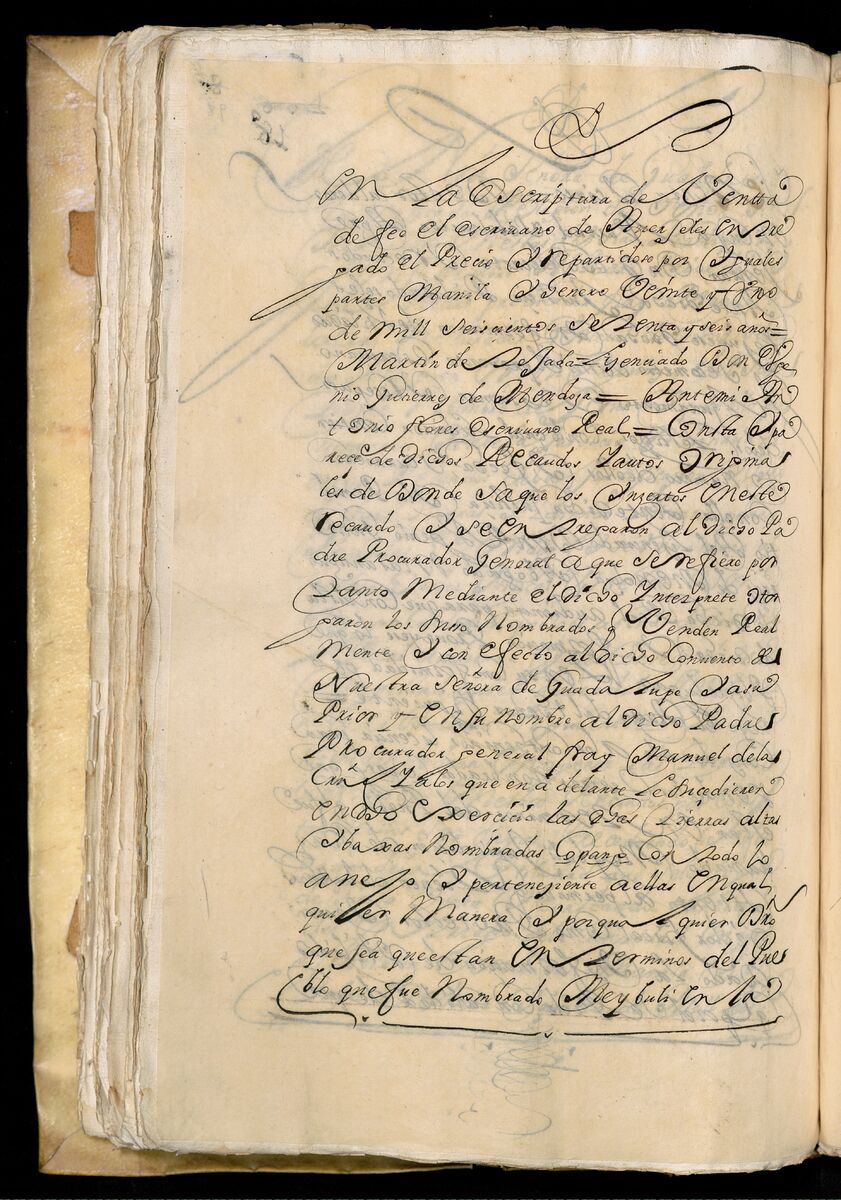 En La Escriptura de Ventta
de feé el Escriuano de Auerseles Entre
gado el Precio Y repartidose por Yguales
partes Manila Y henero Veinte y Uno
de mill seiscientos settenta y seis años=
Martín de Tejada= Lisenciado Don Euge
nio Gutierrez de Mendoza= Antemi An
tonio flores Escriuano Real= Consta Ypa
rece de dichos Recaudos Yautos Origina
les de Donde saque los Ynzertos Eneste
recaudo Y se Entregaron al dicho Pa
dre Procurador General a que se refiere por
Tanto Mediante el dicho Ynterprete Otor
garon los suso Nombrados y Venden Real
Mente Y con efecto al dicho Conuento de
Nuestra Señora de Guadalupe Yasu
Prior y En su Nombre al dicho Padre
Procurador general fray Manuel dela
Cruz Yalos que en adelante le sucedieren
En dho Exercicio las dhas Tierras altas
Ybaxas Nombradas Copango Con todo lo
anejo Y pertenesiente a ellas En qual
quier Manera Y porqualquier Dro
que sea que estan En terminos del Pue
blo que fue Nombrado Meybuli En la